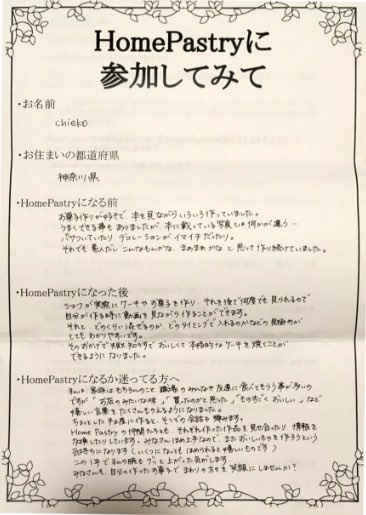 HomePastryに
参加してみて
・お名前
chieko
・お住まいの都道府県
神奈川県
・HomePastryになる前
お菓子作りが好きで 本を見ながらいろいろ作っていました。
うまくできる事もありましたが 本に載っている写真とは何かが違う…
パサついていたり デコレーションがイマイチだったり。
それでも 素人だし こんなもんかな、まぁまぁかな と思って作り続けていました。
・HomePastryになった後
シェフが実際にケーキやお菓子を作り、それを後で何度でも見られるので
自分が作る時に動画を見ながら作ることができます。
それと どのくらい混ぜるのか、どのタイミングで入れるのかなどの見極めが
とてもわかりやすいです。
そのおかげで失敗知らずで おいしくて本格的なケーキを焼くことが
できるようになりました。
・HomePastryになるか迷ってる方へ
私は、家族はもちろんのこと 職場のみんなや友達に食べてもらう事が多いの
ですが「お店のみたいな味」「買ったのかと思った」「ものすごくおいしい」など
嬉しい言葉をたくさんもらえるようになりました。
ちょっとした手土産に作ると、そこでの会話も弾みます。
Home Pastry の仲間たちとも それぞれ作った作品を見せ合ったり、情報を
交換したりしています。みなさんほめ上手なので、またおいしいものを作ろうという
気持ちになります(いくつになってもほめられると嬉しいものです)
この1年で私の腕もグッと上がった気がします。
みなさんも、自分が作ったお菓子で まわりの方々を笑顔にしませんか?